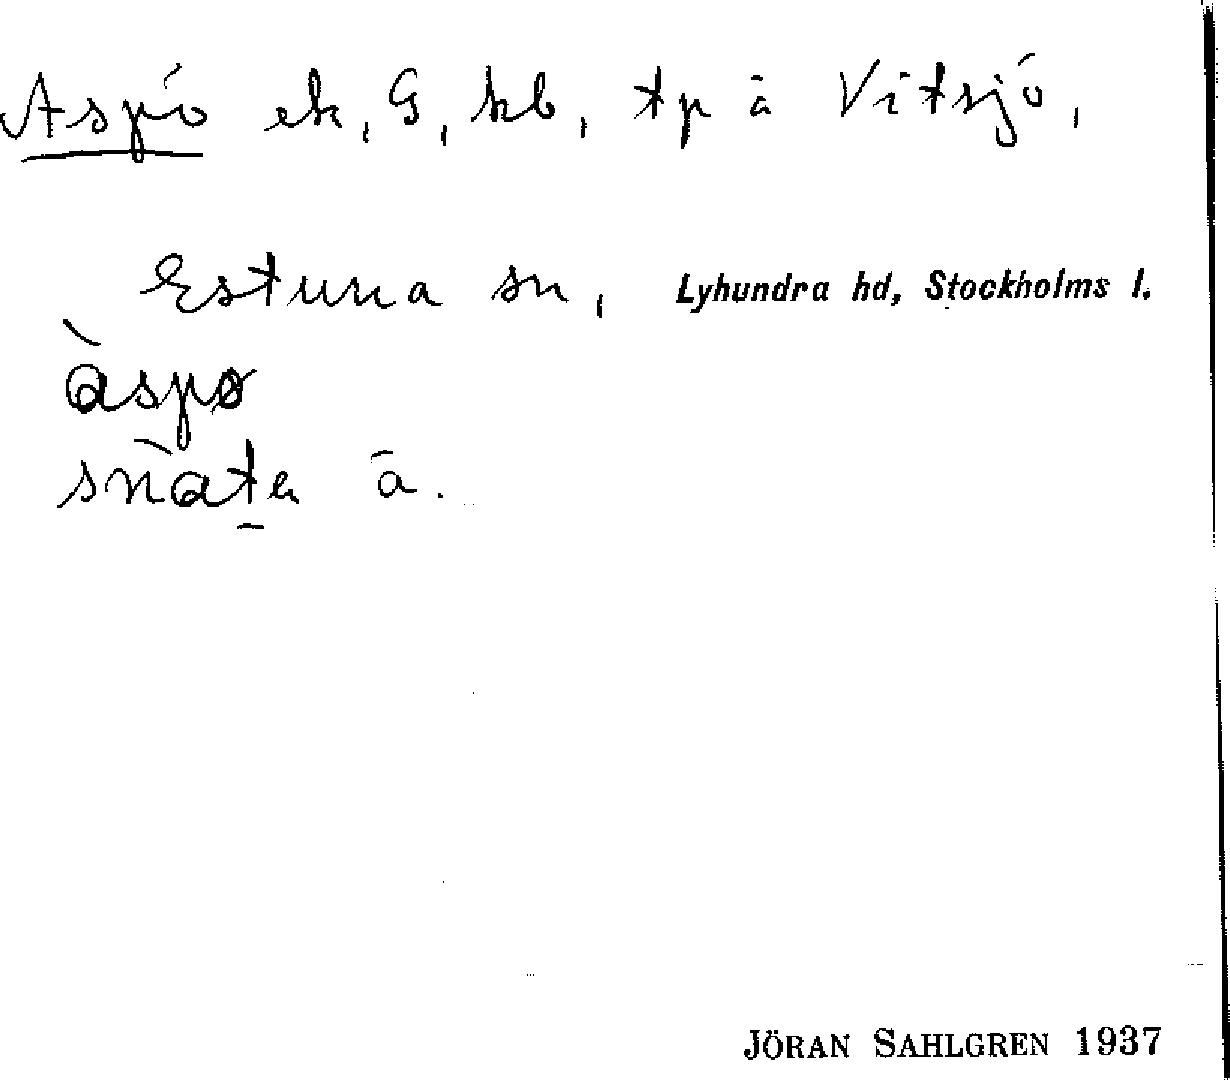 Aspö ek, G, kb, tp å Vitsjö,
Estuna sn, Lyhundra hd, Stockholms l.
àspø
å.
JÖRAN SAHLGREN 1937